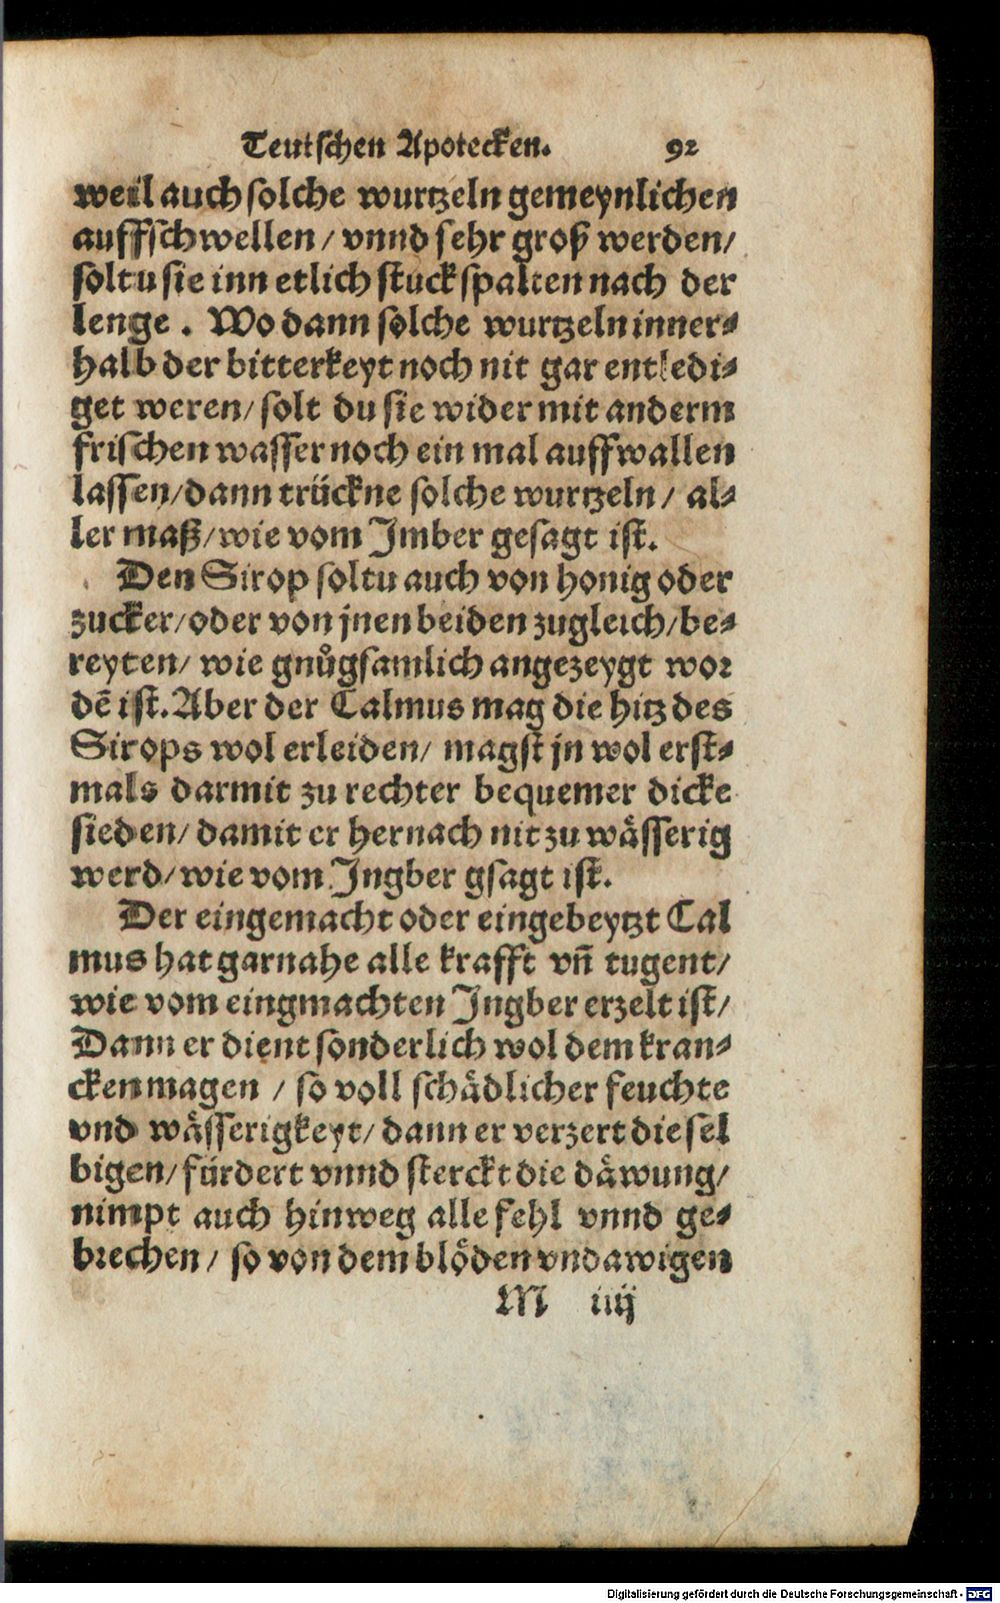 Teutschen Apotecken. 92
weil auch solche wurtzeln gemeynlichen
auffschwellen / vnnd sehr groß werden /
soltu sie inn etlich stuck spalten nach der
lenge . Wo dann solche wurtzeln inner⸗
halb der bitterkeyt noch nit gar entledi⸗
get weren / solt du sie wider mit anderm
frischen wasser noch ein mal auffwallen
lassen / dann trückne solche wurtzeln / al⸗
ler maß / wie vom Imber gesagt ist.
Den Sirop soltu auch von honig oder
zucker / oder von jnen beiden zugleich / be⸗
reyten / wie gnůgsamlich angezeygt wor
dē ist. Aber der Calmus mag die hitz des
Sirops wol erleiden / magst jn wol erst⸗
mals darmit zu rechter bequemer dicke
sieden / damit er hernach nit zu wässerig
werd / wie vom Ingber gsagt ist.
Der eingemacht oder eingebeytzt Cal
mus hat garnahe alle krafft vñ tugent /
wie vom eingmachten Ingber erzelt ist /
Dann er dient sonderlich wol dem kran⸗
cken magen / so voll schädlicher feuchte
vnd wässerigkeyt / dann er verzert diesel
bigen / fürdert vnnd sterckt die däwung /
nimpt auch hinweg alle fehl vnnd ge⸗
brechen / so von dem blöden vnd awigen
M iiij
Digitalisierung gefördert durch die Deutsche Forschungsgemeinschaft - DFG